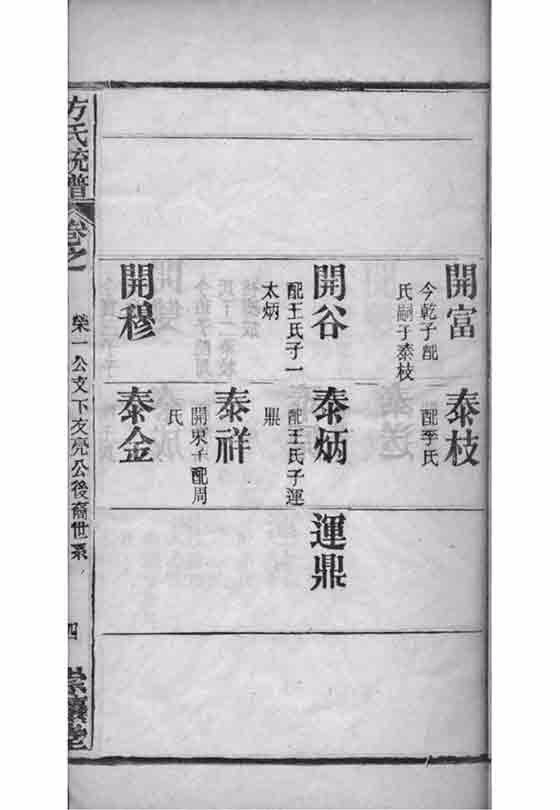 開富
今乾子配
氏嗣子泰枝
開谷
配王氏子一
太炳
開穆
泰枝
配李氏
泰炳
配王氏子運
鼎
泰祥
開東子配周
氏
泰金
運鼎
方氏統譜
卷之
榮一公文下友亮公後裔世系
四